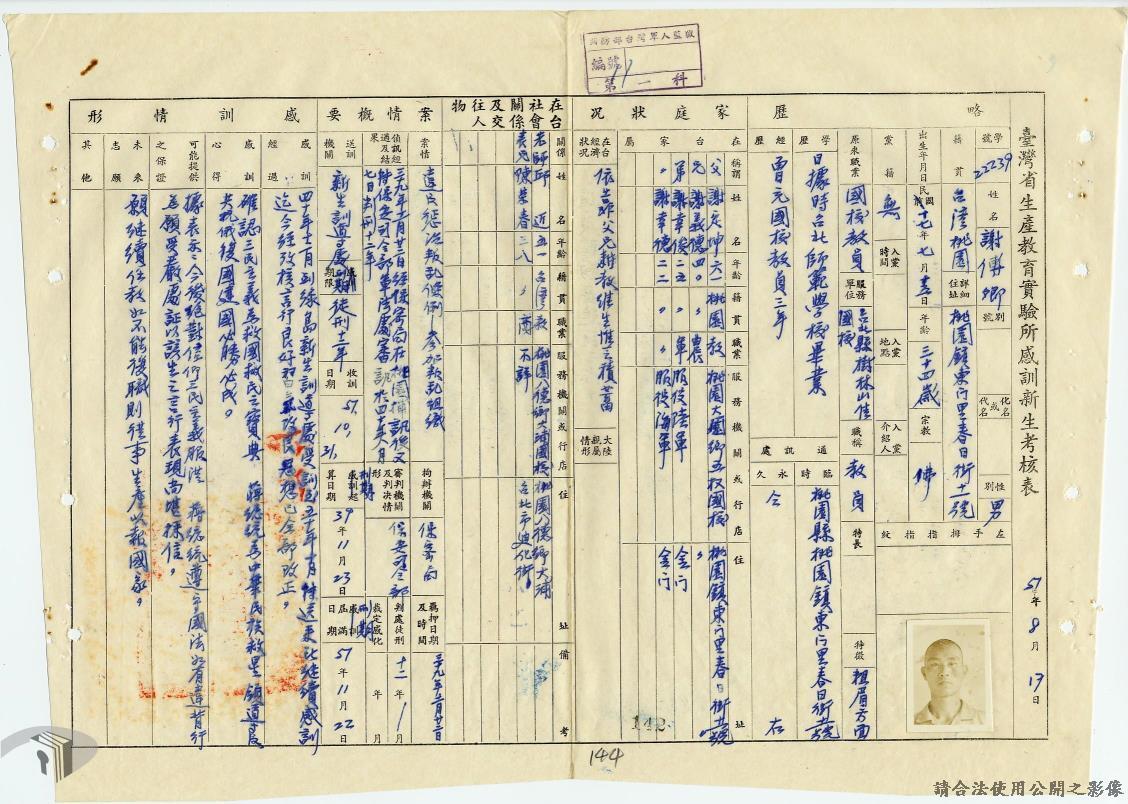 國防部台灣軍人監獄
編號
第一科
臺灣省生產教育實驗所感訓新生考核表
51年8月17日
略
學號 22239
姓名 謝傳卿
別號
化名或代名
性別 男
籍貫 台灣桃園
詳細住址 桃園鎮東門里春日街十一號
左手拇指指紋
出生年月日 民國十七年七月
年齡 三十四歲
宗教 佛
黨籍 無
入黨時間
入黨地點
入黨介紹人
原來職業 國校教員
服務單位 台北縣樹林山佳國校
職稱 教員
特長
特徵 粗眉方面
歷
學歷 日據時台北師範學校畢業
經歷 曾充國校教員三年
通訊處
臨時 桃園縣桃園鎮東門里春日街
永久 仝 右
家庭狀況
在台家屬
稱謂 姓名 年齡 籍貫 職業 服務機關或行店 住址
父 謝定坤 六一 桃園 教 桃園大園鄉五权國校 桃園鎮東門里春日街
兄 謝義德 四〇 〃 農 〃
弟 謝幸俊 二五 〃 軍 服役陸軍 金門
〃 謝幸德 二二 〃 〃 服役海軍 金門
在台經濟狀況 依靠父兄耕教維生惟乏積蓄
大陸親屬情形
在台社會關係及交往人物
關係 姓名 年齡 籍貫 職業 服務機關或行店 住址 備考
老師 邱 近 五一 台灣 教 桃園八德鄉大埔國校 桃園八德鄉大埔
表兄 陳榮春 二八 〃 商 不詳 台北市迪化街
案情概要
案情 違反懲治叛乱條例 參加叛乱組織
拘辦機關 保密局
羈押日期及時間
偵訊經過及結果
審判機關及判決情形 保安司令部
判處徒刑 十二年
裁定感化 年 月
送訓機關 新生訓導處
感訓期限 徒刑十二年
收訓日期 51.10.31.
感訓起算日期 39年11月23日
感訓屆滿日期 51年11月22日
感訓情形
感訓經過 四十年十二月到綠島新生訓導處受訓迄五十年十月
迄今經考核言行良好
感訓心得 確認三民主義為救國救民之寶典 蔣總統為中華民族救星領導反
共抗俄復國建國必勝必成。
可能提供之保證 據表示今後絕對信仰三民主義服從 蔣總統遵守國法如有違背行
為願受嚴處証以該生之言行表現尚堪採信。
未來志願 願繼續任教如不能復職則從事生產以報國家。
其他
142
144
請合法使用公開之影像